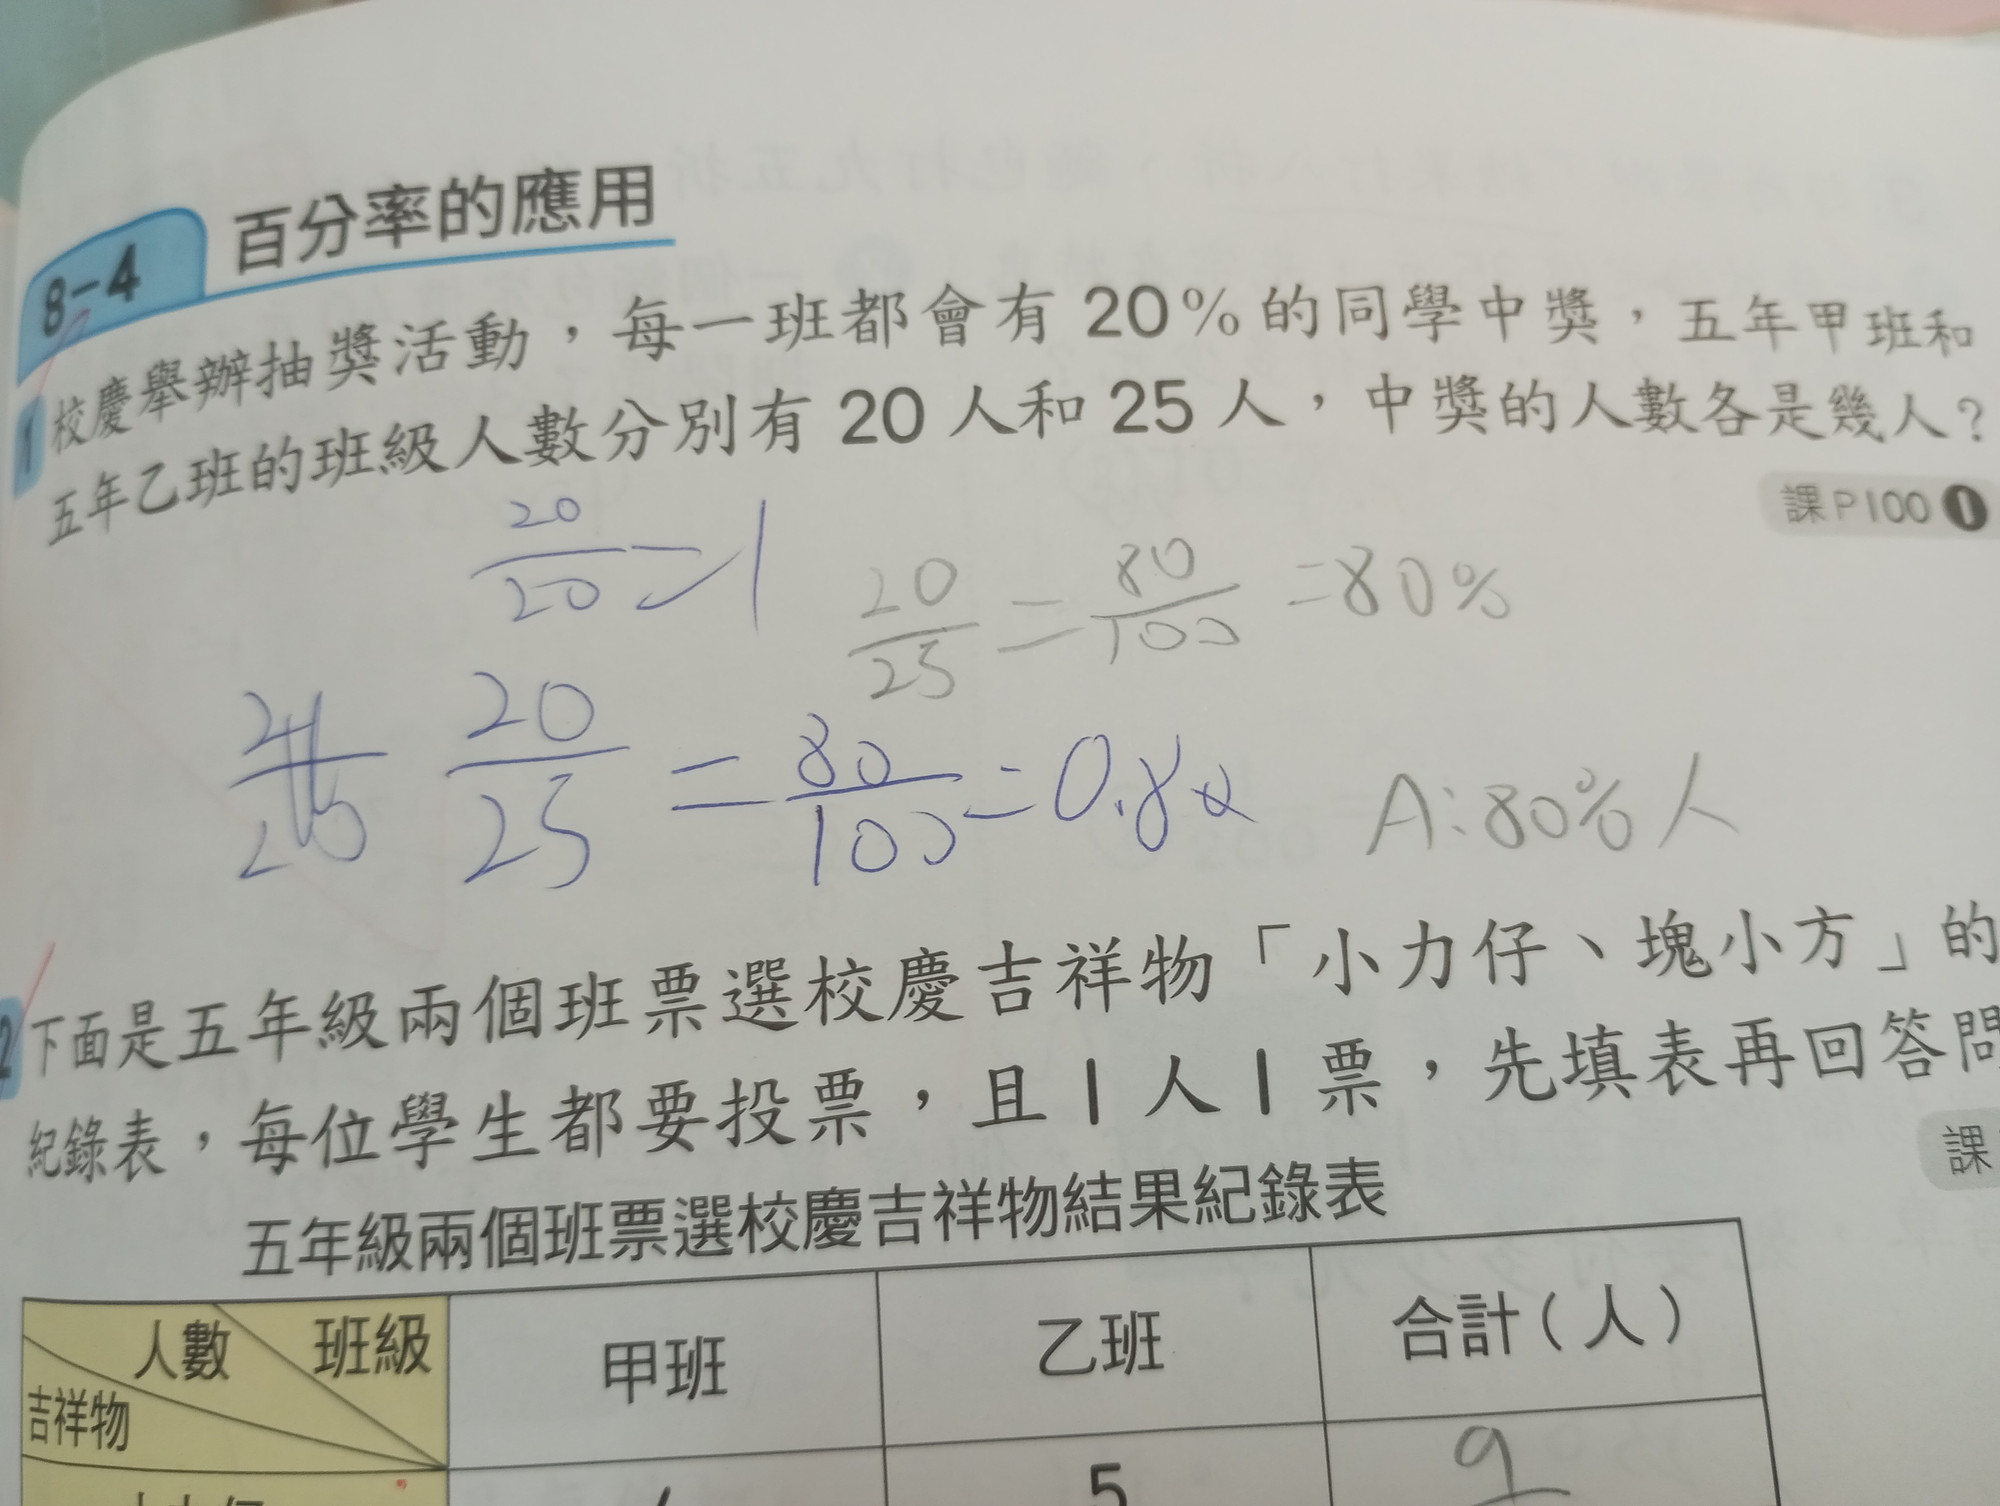 8-4 百分率的應用
1 校慶舉辦抽獎活動，每一班都會有 20% 的同學中獎，五年甲班和
五年乙班的班級人數分別有 20 人和 25 人，中獎的人數各是幾人？
課P100 1
20/20 = 1
20/25 = 80/100 = 80%
20/25 = 80/100 = 0.8
A:80%人
2 下面是五年級兩個班票選校慶吉祥物「小力仔、塊小方」的
紀錄表，每位學生都要投票，且1人1票，先填表再回答問
課
五年級兩個班票選校慶吉祥物結果紀錄表
人數 班級 吉祥物 甲班 乙班 合計(人)
5 9